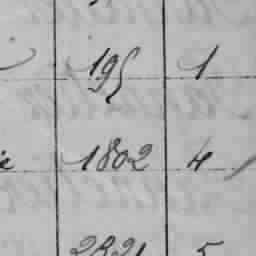 195 1
1802 4
2821 5